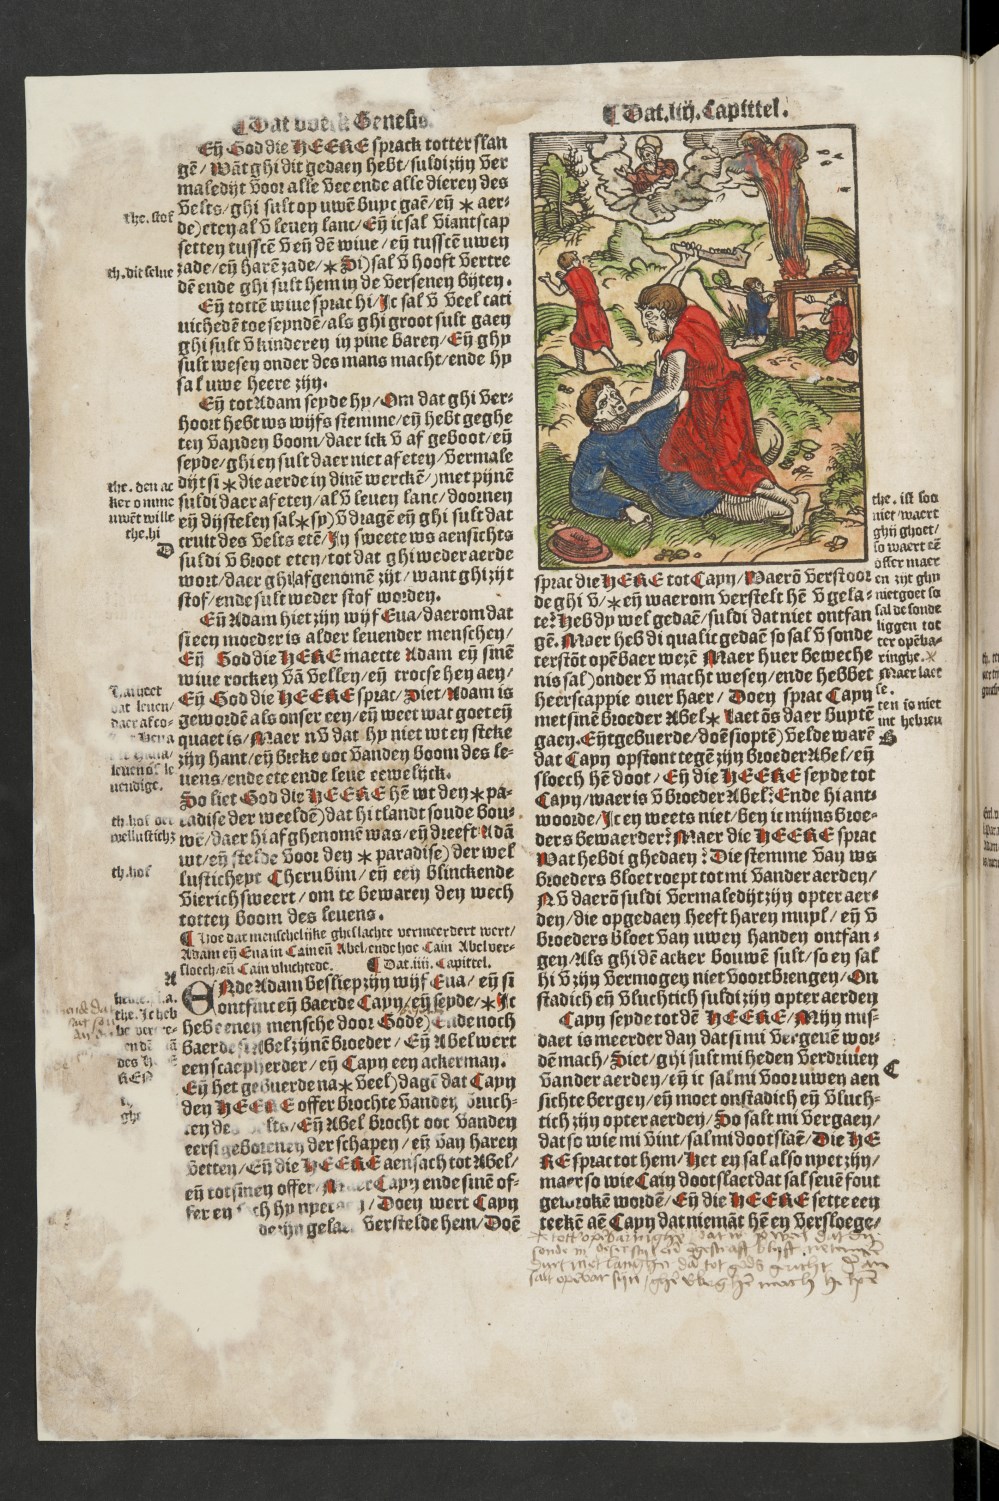 Dat boeck Genesis.
Eñ God die HEERE sprack totter slan
gē/ Wāt ghi dit gedaen hebt/ suldi zijn ver
maledijt voor alle vee ende alle dieren des
velts/ ghi sult op uwē buyc gaē/ eñ * aer⸗
de) eten al v leuen lanc/ Eñ ic sal viantscap
setten tusscē v eñ dē wiue/ eñ tusscē uwen
zade/ eñ harē zade/ * Di) sal v hooft vertre
dē ende ghi sult hem in de versenen bijten.
Eñ tottē wiue sprac hi/ Ic sal v veel cati
uichedē toe seyndē/ als ghi groot sult gaen
ghi sult v kinderen in pine baren/ Eñ ghy
sult wesen onder des mans macht/ ende hy
sal uwe heere zijn.
Eñ tot Adam seyde hy/ Om dat ghi ver⸗
hoort hebt ws wijfs stemme/ eñ hebt geghe
ten vanden boom/ daer ick v af geboot/ eñ
seyde/ ghi en sult daer niet af eten/ vermale
dijt si * die aerde in dinē werckē/) met pijnē
suldi daer af eten/ al v leuen lanc/ doornen
eñ dijstelen sal * sy) v dragē eñ ghi sult dat
cruit des velts etē/ In sweete ws aensichts
suldi v broot eten/ tot dat ghi weder aerde
wort/ daer ghi afgenomē zijt/ want ghi zijt
stof/ ende sult weder stof worden.
Eñ Adam hiet zijn wijf Eua/ daerom dat
si een moeder is alder leuender menschen/
Eñ God die HERE maecte Adam eñ sinē
wiue rocken vā vellen/ eñ trocse hen aen/
Eñ God die HEERE sprac/ Siet/ Adam is
gewordē als onser een/ eñ weet wat goet eñ
quaet is/ Maer nv dat hy niet wt en steke
zijn hant/ eñ breke ooc vanden boom des le⸗
uens/ ende ete ende leue eewelijck.
So liet God die HEERE hē wt den * pa⸗
radise der weeldē) dat hi tlandt soude bou⸗
wē/ daer hi af ghenomē was/ eñ dreef Adā
wt/ eñ stelde voor den * paradise) der wel
lusticheyt Cherubim/ eñ een blinckende
vierich sweert/ om te bewaren den wech
totten boom des leuens.
¶ Hoe dat menschelijke gheslachte vermeerdert wert/
Adam eñ Eua in Cain eñ Abel/ ende hoe Cain Abel ver⸗
sloech/ eñ Cain vluchtede. ¶ Dat .iiii. Capittel.
A
ENde Adam besliep zijn wijf Eua/ eñ si
ontfinc eñ baerde Cayn/ eñ seyde/ * Ic
heb eenen mensche door Gode) Ende noch
baerde si Abel zijnē broeder/ Eñ Abel wert
een scaepherder/ eñ Cayn een ackerman.
Eñ het gebuerde na * veel) dagē dat Cayn
den HEERE offer brochte vanden vruch⸗
Eñ Abel brocht ooc vanden
eerst geborenen der schapen/ eñ van haren
vetten/ Eñ die HEERE aensach tot Abel/
eñ tot sinen offer/ Maer Cayn ende sinē of⸗
fer en Doen wert Cayn
verstelde hem/ Doē
the. stof
th. dit selue
the. den ac
ker o mme
uwēt wille
the. hi
D
leuen/
daer af co⸗
uendigt.
th. hof
th. hof
the. Ic heb
¶ Dat .iiij. Capittel.
sprac die HERE tot Cayn/ Waerō verstoor
de ghi v/ * eñ waerom verstelt hē v gela⸗
te? Heb dy wel gedaē/ suldi dat niet ontfan
gē. Maer heb di qualic gedaē so sal v sonde
terstōt opēbaer wezē Maer huer beweche
nis sal) onder v macht wesen/ ende hebbet
heerscappie ouer haer/ Doen sprac Cayn
met sinē broeder Abel * Laet ōs daer buytē
gaen. Eñ tgebuerde/ doē si optē) velde warē
dat Cayn opstont tegē zijn broeder Abel/ eñ
sloech hē doot/ Eñ die HEERE seyde tot
Cayn/ waer is v broeder Abel? Ende hi ant⸗
woorde/ Ic en weets niet/ ben ic mijns broe⸗
ders bewaerder? Maer die HEERE sprac
Wat hebdi ghedaen? Die stemme van ws
broeders bloet roept tot mi vander aerden/
Nv daerō suldi vermaledijt zijn opter aer⸗
den/ die opgedaen heeft haren muyl/ eñ v
broeders bloet van uwen handen ontfan⸗
gen/ Als ghi dē acker bouwen sult/ so en sal
hi v zijn vermogen niet voort brengen/ On
stadich eñ vluchtich suldi zijn opter aerden
Cayn seyde tot dē HEERE/ Mijn mis⸗
daet is meerder dan dat si mi vergeuē wor⸗
dē mach/ Siet/ ghi sult mi heden verdriuen
vander aerden/ eñ ic sal mi voor uwen aen
sichte bergen/ eñ moet onstadich eñ vluch⸗
tich zijn opter aerden/ So salt mi vergaen/
dat so wie mi vint/ sal mi doot slaē/ Die HE
RE sprac tot hem/ Het en sal also nyet zijn/
maer so wie Cain doot slaet dat sal seuē fout
gewrokē wordē/ Eñ die HEERE sette een
teekē aē Cayn dat niemāt hē en versloege/
the. ist soo
niet/ waert
ghij ghoet/
so waert tē
offer maer
en zijt ghij
niet goet so
sal de sonde
liggen tot
ter opēba⸗
ringhe.
Maer laet
se.
ten io niet
int hebreu
B
C